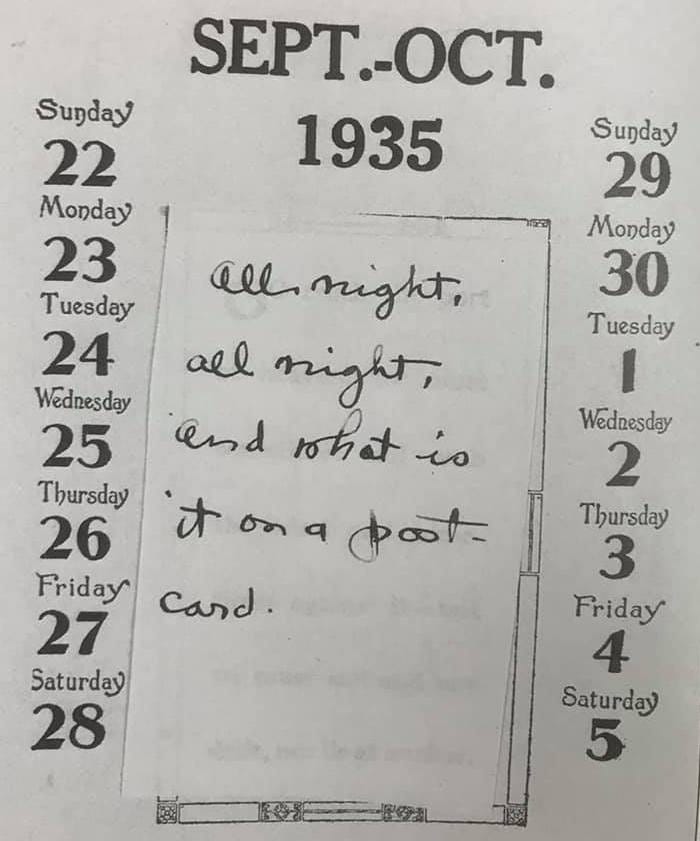 SEPT.-OCT.
1935
Sunday
22
Monday
23
Tuesday
24
Wednesday
25
Thursday
26
Friday
27
Saturday
28
all night,
all night,
and what is
it on a post-
card.
Sunday
29
Monday
30
Tuesday
1
Wednesday
2
Thursday
3
Friday
4
Saturday
5